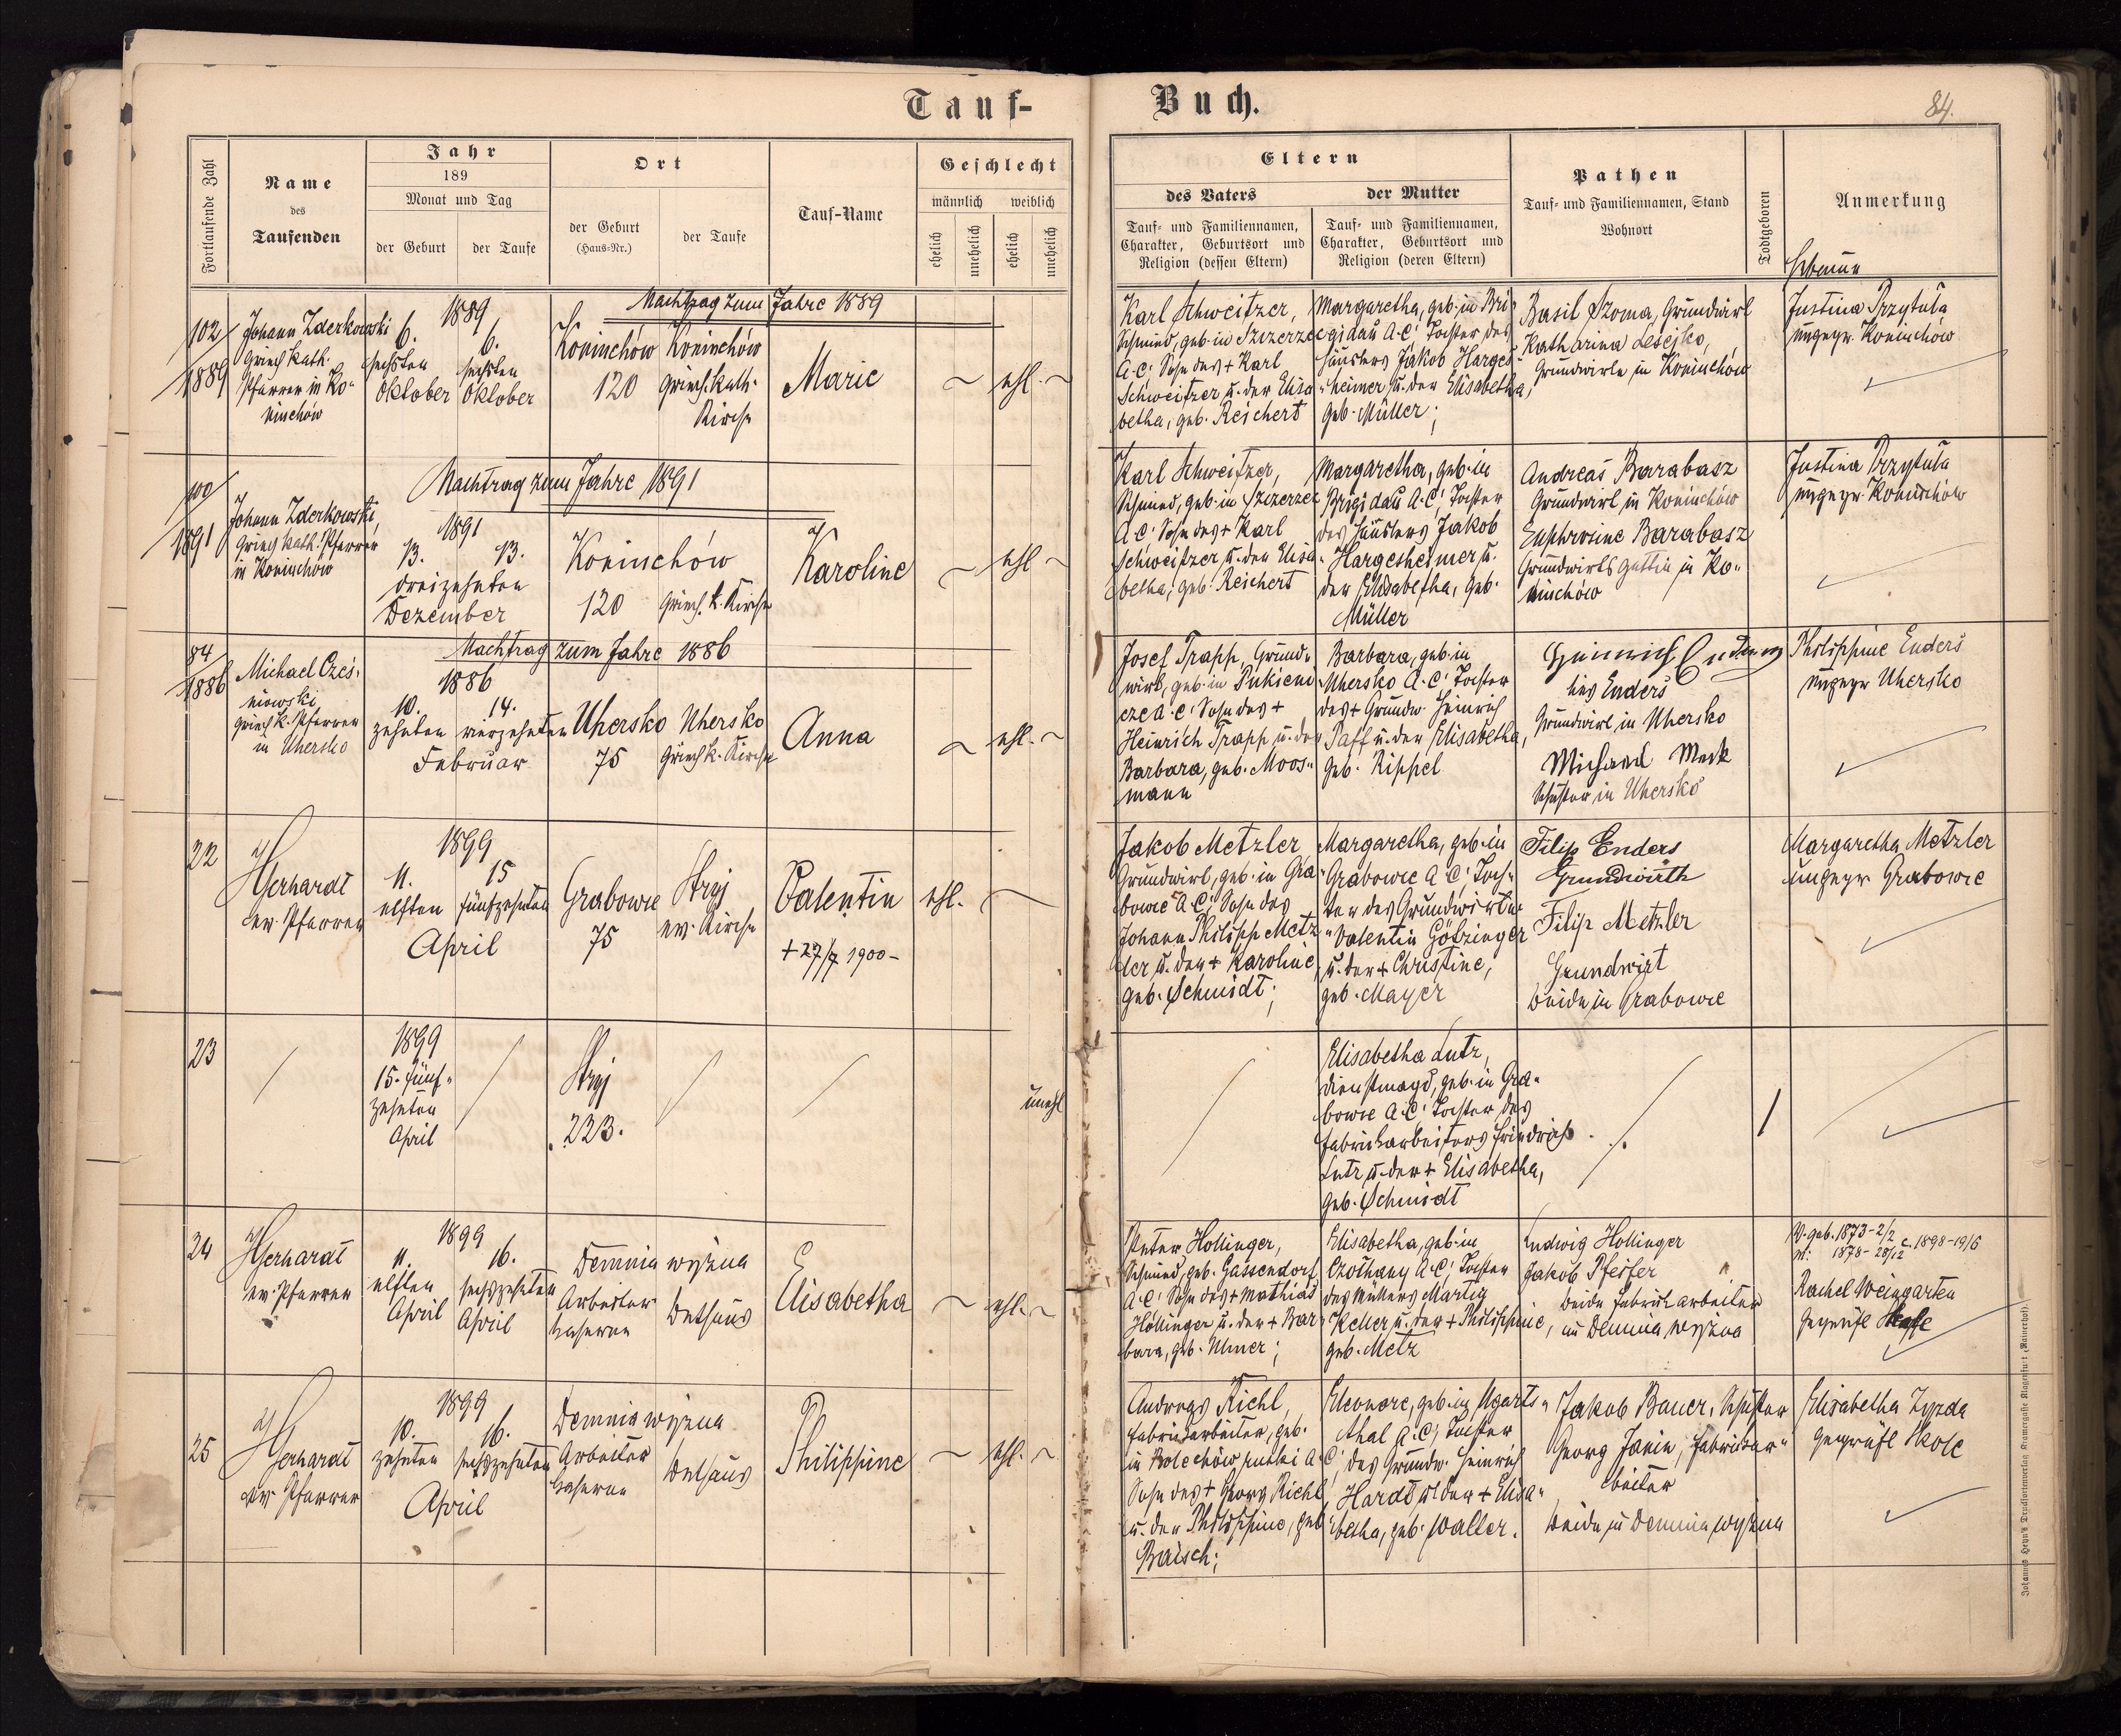 Tauf-
Buch.
84.
Fortlaufende Zahl
Name
des
Taufenden
Jahr
189
Monat und Tag
der Geburt
der Taufe
Ort
der Geburt
(Haus-Nr.)
der Taufe
Tauf-Name
Geschlecht
männlich
weiblich
ehelich
unehelich
ehelich
unehelich
Eltern
des Vaters
Tauf- und Familiennamen,
Charakter, Geburtsort und
Religion (dessen Eltern)
der Mutter
Tauf- und Familiennamen,
Charakter, Geburtsort und
Religion (deren Eltern)
Pathen
Tauf- und Familiennamen, Stand
Wohnort
Todtgeboren
Anmerkung
Hebamme
Nachtrag zum Jahre 1889
102/
1889
Johann Zderkowski
griech. kath.
Pfarrer in Ko-
ninchów
1889
6.
sechsten
Oktober
6.
sechsten
Oktober
Koninchów
120
Koninchów
griech. kath.
Kirche
Marie
ehl.
Karl Schweitzer,
Schmied, geb. in Szczerzec
A.C. Sohn des + Karl
Schweitzer u. der Elisa
betha, geb. Reichert
Margaretha, geb. in Bri-
gidau A.C. Tochter des
Häuslers Jakob Harges-
heimer u. der Elisabetha,
geb. Müller;
Basil Szoma, Grundwirt
Katharina Lesejko,
Grundwirtin Koninchów
Justina Przytuła
ungepr. Koninchów
Nachtrag zum Jahre 1891
100/
1891
Johann Zderkowski,
griech. kath. Pfarrer
in Koninchów
1891
13.
13.
dreizehnten
Dezember
Koninchów
120
griech. k. Kirche
Karoline
ehl.
Karl Schweitzer,
Schmied, geb. in Szczerzec
A.C. Sohn des + Karl
Schweitzer u. der Elisa
betha, geb. Reichert
Margaretha, geb. in
Brigidau A.C. Tochter
des Häuslers Jakob
Hargesheimer u.
der Elisabetha, geb.
Müller
Andreas Barabasz
Grundwirt in Koninchów
Euphrosine Barabasz
Grundwirts gattin in Ko-
ninchów
Justina Przytuła
ungepr. Koninchów
Nachtrag zum Jahre 1886
84/
1886
Michael Czes-
niowski
griech. k. Pfarrer
in Uhersko
1886
10.
zehnten
14.
vierzehnten
Februar
Uhersko
75
Uhersko
griech. k. Kirche
Anna
ehl.
Josef Trapp, Grund-
wirt, geb. in Pukieni
cze A.C. Sohn des +
Heinrich Trapp u. der
Barbara, geb. Moos-
mann
Barbara, geb. in
Uhersko A.C. Tochter
des + Grundw. Heinrich
Paff u. der Elisabetha,
geb. Rippel
Heinrich Enders
Enders
Grundwirt in Uhersko
Michael Meck
Schuster in Uhersko
Philippine Enders
ungepr. Uhersko
22
HGerhardt
ev. Pfarrer
1899
11.
elften
15
fünfzehnten
April
Grabowce
75
Stryj
ev. Kirche
Valentin
+ 27/7 1900-
ehl.
Jakob Metzler
Grundwirt, geb. in Gra-
bowce A.C. Sohn des
Johann Philipp Metz
ler u. der + Karoline,
geb. Schmidt;
Margaretha, geb. in
Grabowce A.C. Toch-
ter des Grundwirten
Valentin Götzinger
u. der + Christine,
geb. Mayer
Filip Enders
Grundwirth
Filip Metzler
Grundwirt
beide in Grabowce
Margaretha Metzler
ungepr. Grabowce
23
1899
15. fünf-
zehnten
April
Stryj
223.
unehl
Elisabetha Lutz,
Dienstmagd, geb. in Gra-
bowce A.C. Tochter des
Fabriksarbeiters Friedrich
Lutz u. der + Elisabetha,
geb. Schmidt
24
HGerhardt
ev. Pfarrer
1899
11.
elften
April
16.
sechszehnten
April
Demnia wyżna
Arbeiter
kaserne
Bethaus
Elisabetha
ehl.
Peter Hollinger,
Schmied, geb. Gassendorf
A.C. Sohn des + Mathias
Hollinger u. der + Bar-
bara, geb. Ulmer;
Elisabetha, geb. in
Czołhany A.C. Tochter
des Müllers Martin
Keller u. der + Philippine,
geb. Metz
Ludwig Hollinger
Jakob Pfeifer
beide Fabriksarbeiter
in Demnia wyżna
V. geb. 1873-2/2
M. 1878-28/12 c. 1898-19/6
Rachel Weingarten
geprüft Skole
25
HGerhardt
ev. Pfarrer
1899
10.
zehnten
16.
sechszehnten
April
Demnia wyżna
Arbeiter
kaserne
Bethaus
Philippine
ehl.
Andreas Richl,
Fabriksarbeiter, geb.
in Bolechów ruski A.C.
Sohn des + Georg Richl
u. der Philippine, geb.
Baisch;
Eleonore, geb. in Ugarts-
thal A.C. Tochter
des Grundw. Heinrich
Hardt u. der + Elisa-
betha, geb. Walter.
Jakob Bauer, Schuster
Georg Janin, Fabriksar-
beiter
beide in Demnia wyżna
Elisabetha Zyzda
geprüft Skole
Johannes Heyn's Drucksortenverlag Kramergasse Klagenfurt (Rainerhof).